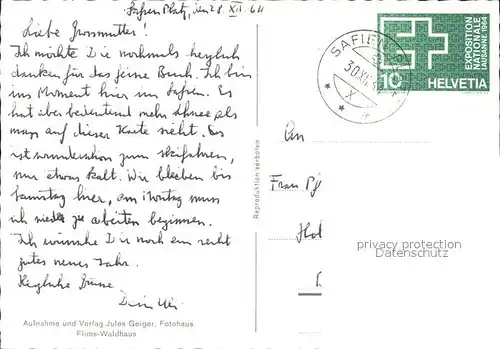 Safien Platz, den 28. XII. 64
Liebe Grossmutter!
Ich möchte Dir nochmals herzlich
danken für das feine Buch. Ich bin
im Moment hier in Safien. Es
hat aber bedeutend mehr Schnee als
man auf dieser Karte sieht. Es
ist wunderschön zum skifahren,
nur etwas kalt. Wir bleiben bis
Samstag hier, am Montag muss
ich wieder zu arbeiten beginnen.
Ich wünsche Dir noch ein recht
gutes neues Jahr.
Herzliche Grüsse
Dein Ueli
Aufnahme und Verlag Jules Geiger, Fotohaus
Flims-Waldhaus
Reproduktion verboten
SAFIEN
30.XII.
X
EXPOSITION
NATIONALE
LAUSANNE 1964
10 HELVETIA
An
Frau
privacy protection
Datenschutz